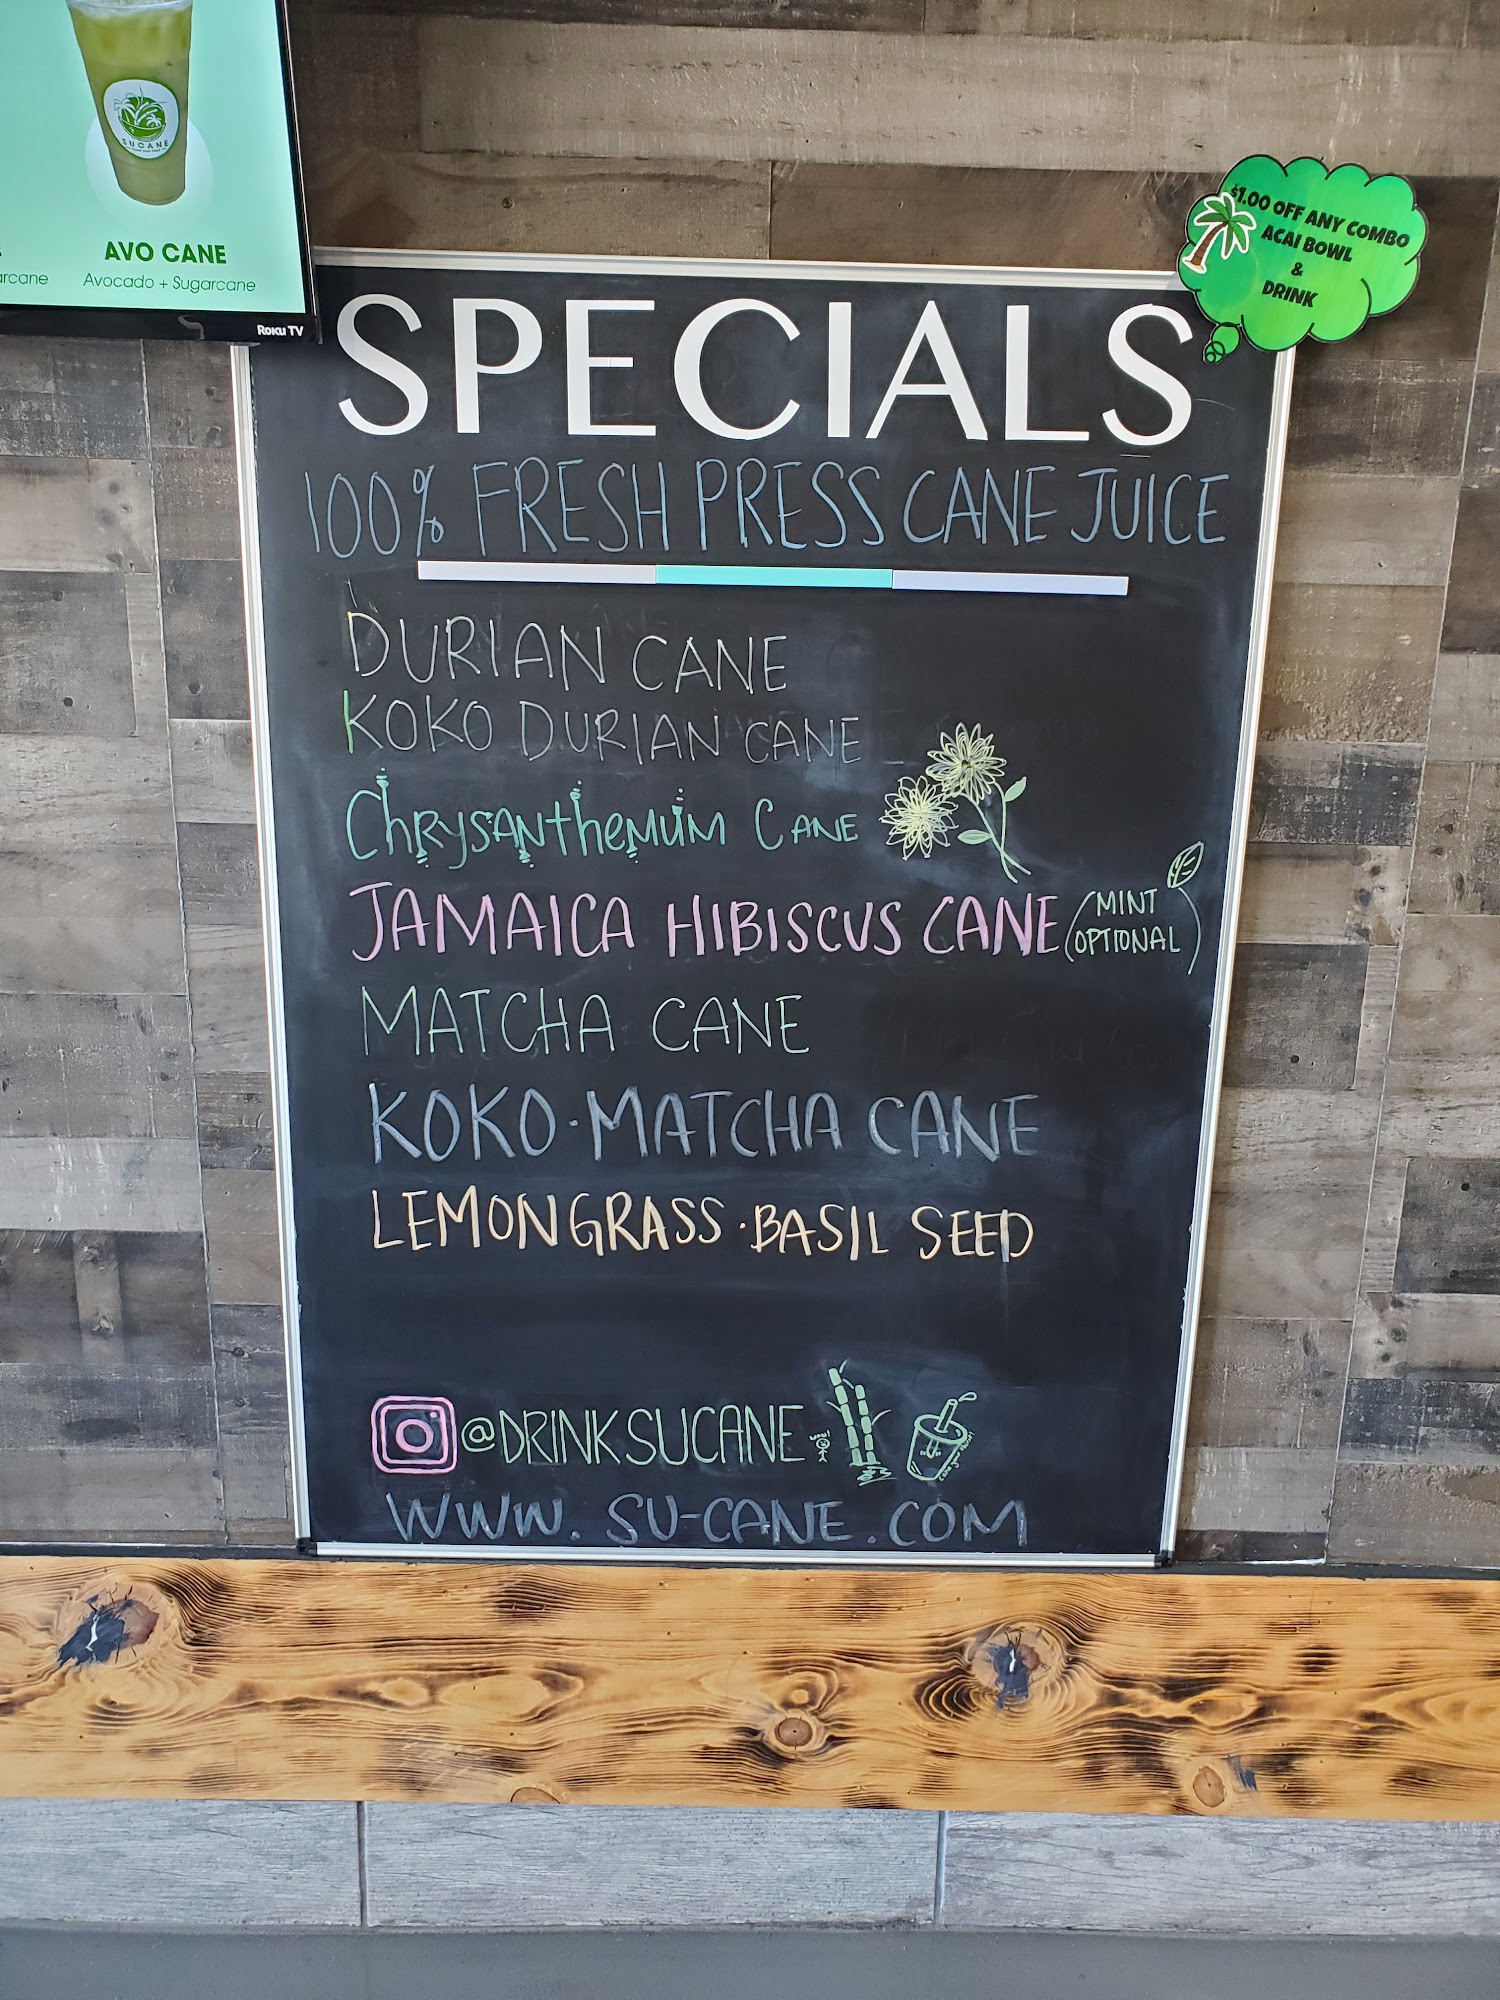 SUCANE
AVO CANE
arcane
Avocado + Sugarcane
Roku TV
$1.00 OFF ANY COMBO
ACAI BOWL
&
DRINK
SPECIALS
100% FRESH PRESS CANE JUICE
DURIAN CANE
KOKO DURIAN CANE
ChRYSANTheMUM CANE
JAMAICA HIBISCUS CANE (MINT
OPTIONAL)
MATCHA CANE
KOKO·MATCHA CANE
LEMONGRASS·BASIL SEED
@DRINKSUCANE
wow!
WWW.SU-CANE.COM